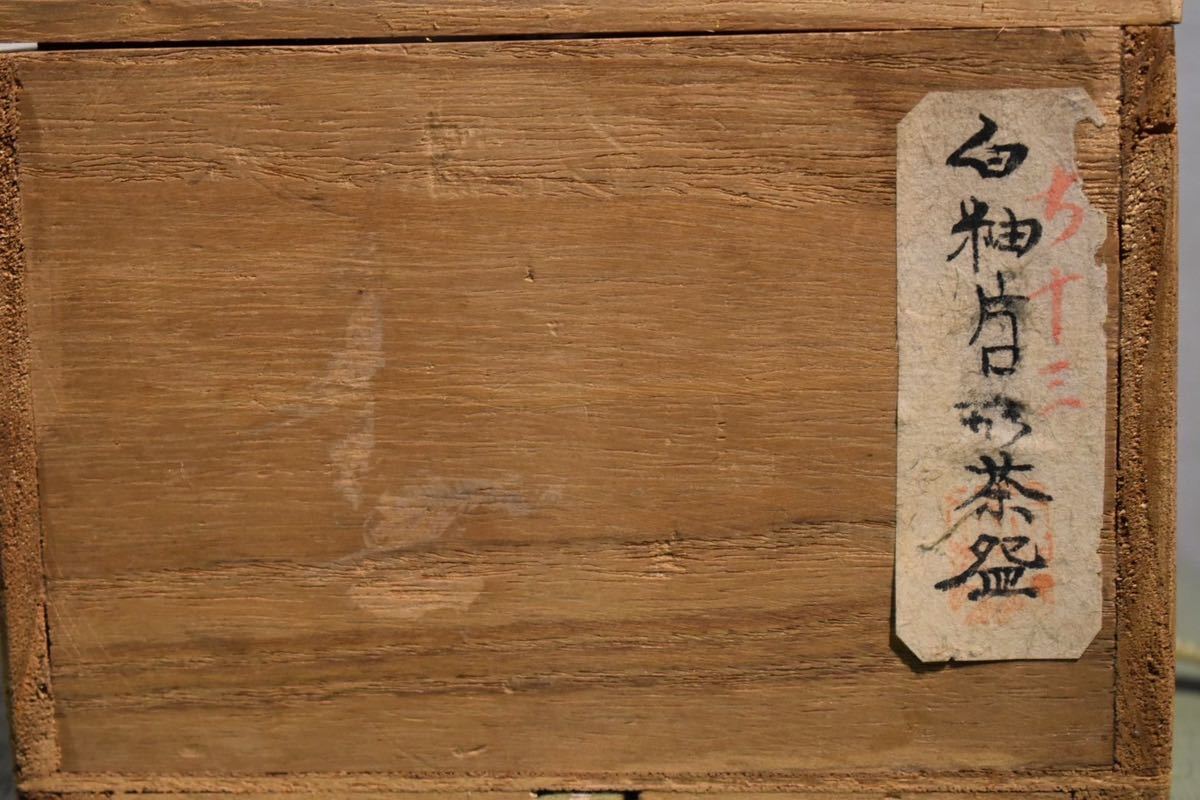 ち十三
白釉片口形茶盌